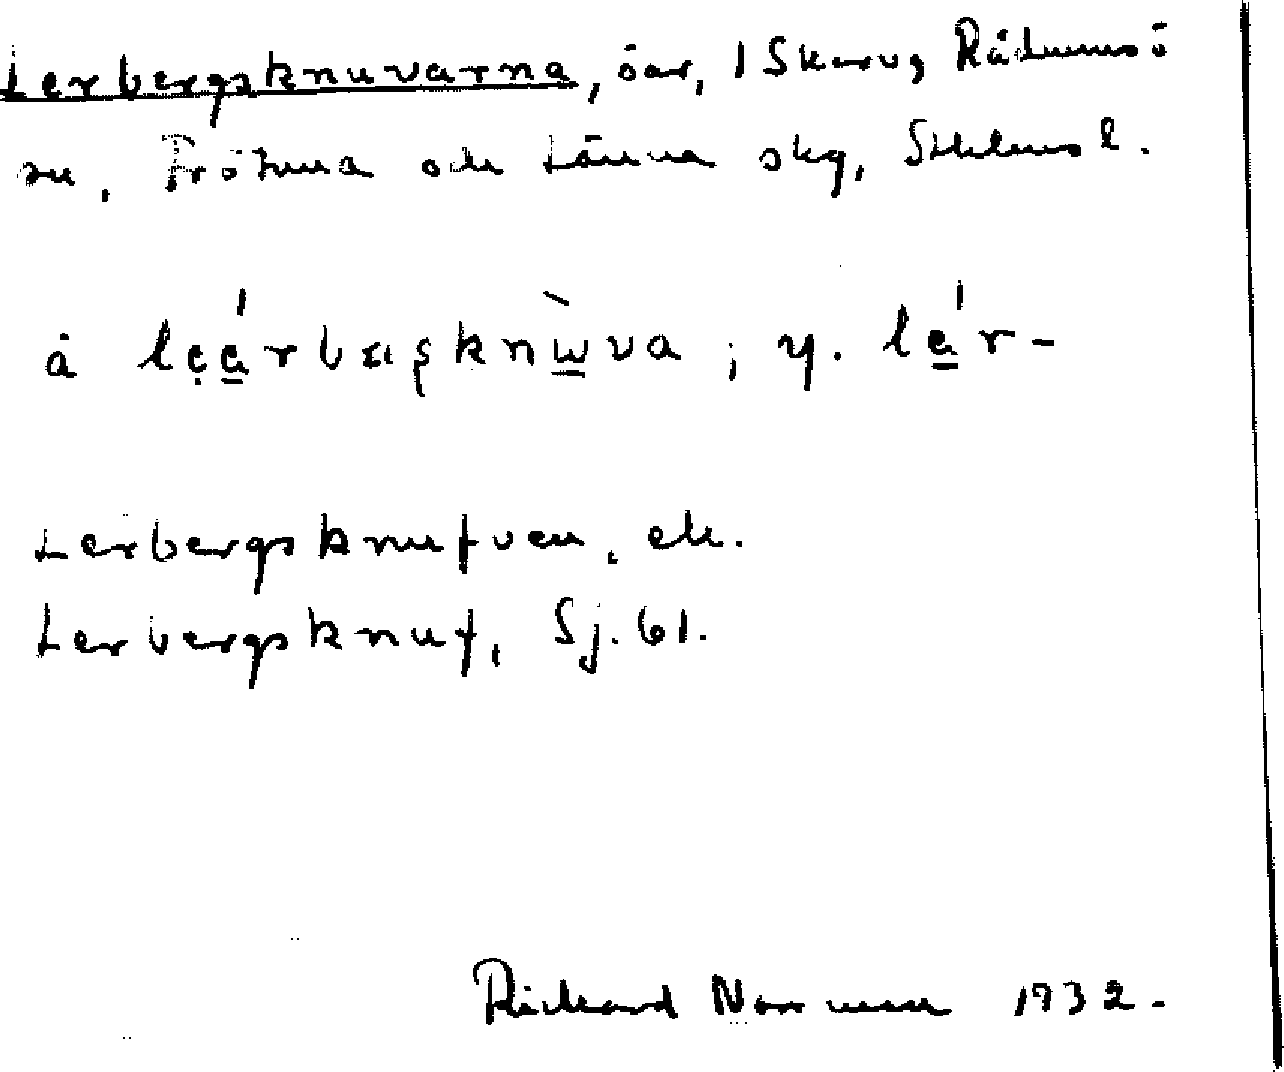 Lerbergsknuvarna, öar, i Skarv, Rådmansö
sn, Frötuna och Länna skg, Sthlms l.
å leárbæsknùva ; y. lár-
Lerbergsknufven, ek.
Lerbergsknuf, Sj. 61.
Richard Norrman 1932.